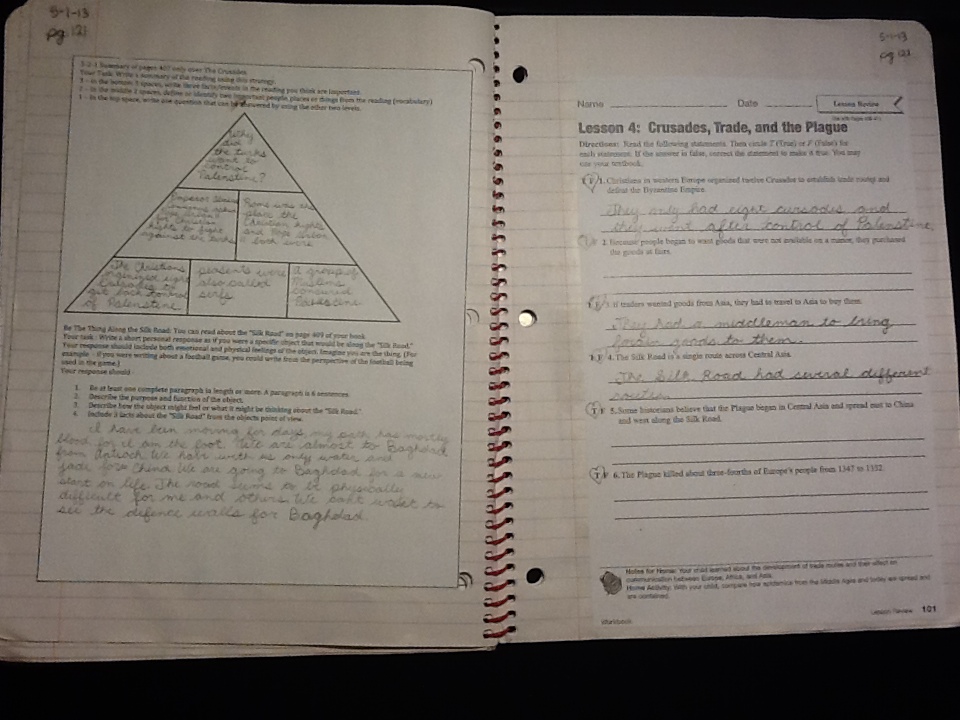 5-1-13
pg. 121
3-2-1 Summary of pages 407 only over The Crusades
Your Task: Write a summary of the reading using this strategy.
3 - In the bottom 3 spaces, write three facts/events in the reading you think are important.
2 - In the middle 2 spaces, define or identify two important people, places or things from the reading (vocabulary)
1 - In the top space, write one question that can be answered by using the other two levels.
Why
did
the turks
want to
control
Palenstine?
Emperor
for Christian
rights to fight
against the turks
Rome was the
place the
Christian rights
and Pope Urban
II
The Christians
organized eight
Crusades to
get back control
of Palenstine
persents were
also called
serfs
A group of
Muslims
concured
Palescine
Be The Thing Along the Silk Road: You can read about the "Silk Road" on page 409 of your book.
Your task: Write a short personal response as if you were a specific object that would be along the "Silk Road."
Your response should include both emotional and physical feelings of the object. Imagine you are the thing. (For
example - if you were writing about a football game, you could write from the perspective of the football being
used in the game.)
Your response should
1. Be at least one complete paragraph in length or more. A paragraph is 6 sentences.
2. Describe the purpose and function of the object.
3. Describe how the object might feel or what it might be thinking about the "Silk Road."
4. Include 3 facts about the "Silk Road" from the objects point of view.
I have been moving for days my path has mostly
blood for I am the foot. We are almost to Baghdad
from Antioch We have with us only water and
jade from China. We are going to Baghdad for a new
start on life. The road seems to be physically
difficult for me and others. We cant wait to
see the defence walls for Baghdad.
5-1-13
pg 121
Name
Date
Lesson Review
Lesson 4: Crusades, Trade, and the Plague
Directions: Read the following statements. Then circle T (True) or F (False) for
each statement. If the answer is false, correct the statement to make it true. You may
use your textbook.
T F 1. Christians in western Europe organized twelve Crusades to establish trade routes and
defeat the Byzantine Empire.
They only had eight cursades and
they went after control of Palenstine
T F 2. Because people began to want goods that were not available on a manor, they purchased
the goods at fairs.
T F 3. If traders wanted goods from Asia, they had to travel to Asia to buy them.
They had a middleman to bring
goods to them.
T F 4. The Silk Road is a single route across Central Asia.
The Silk Road had several different
routes
T F 5. Some historians believe that the Plague began in Central Asia and spread east to China
and west along the Silk Road.
T F 6. The Plague killed about three-fourths of Europe's people from 1347 to 1352.
Notes for Home: Your child learned about the development of trade routes and their effect on
communication between Europe, Africa, and Asia.
Home Activity: With your child, compare how epidemics from the Middle Ages and today are spread and
are contained.
Workbook
Lesson Review 101